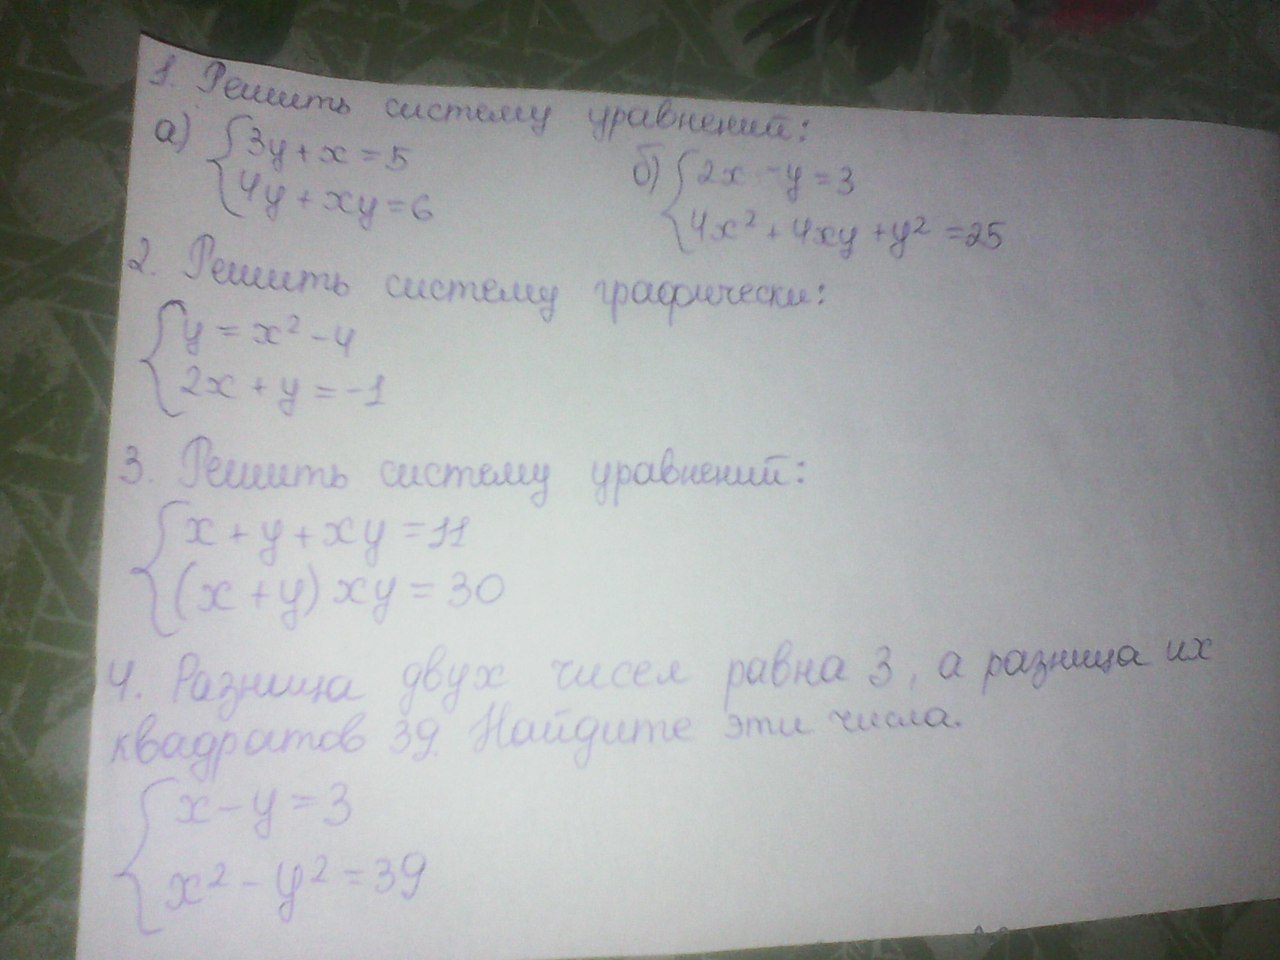 1. Решить систему уравнений:
а) {3y + x = 5 б) {2x - y = 3
4y + xy = 6 4x² + 4xy + y² = 25
2. Решить систему графически:
{y = x² - 4
2x + y = -1
3. Решить систему уравнений:
{x + y + xy = 11
(x + y) xy = 30
4. Разница двух чисел равна 3, а разница их
квадратов 39. Найдите эти числа.
{x - y = 3
x² - y² = 39